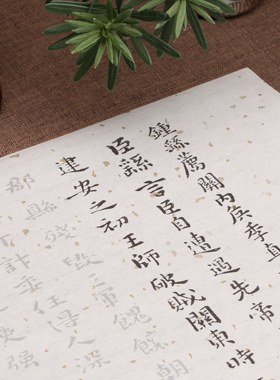 鍾繇薦關内矦季直
臣繇言臣自遭遇先帝
建安之初王師破賊關東時
郡縣殘毀三軍餽餉朝
計委任得人深
強